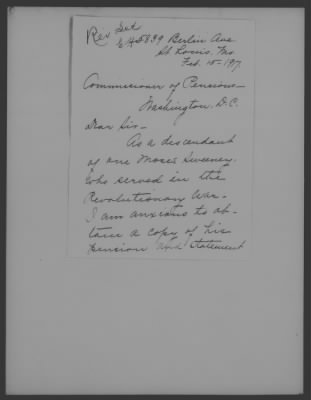 Rev Sect
E.H. 5839 Berlin Ave
St Louis, Mo
Feb. 15-1917
Commissioner of Pensions
Washington, D.C.
Dear Sir-
As a descendant
of one Moses Sweeney,
who served in the
Revolutionary War-
I am anxious to ob-
tain a copy of his
pension and statement